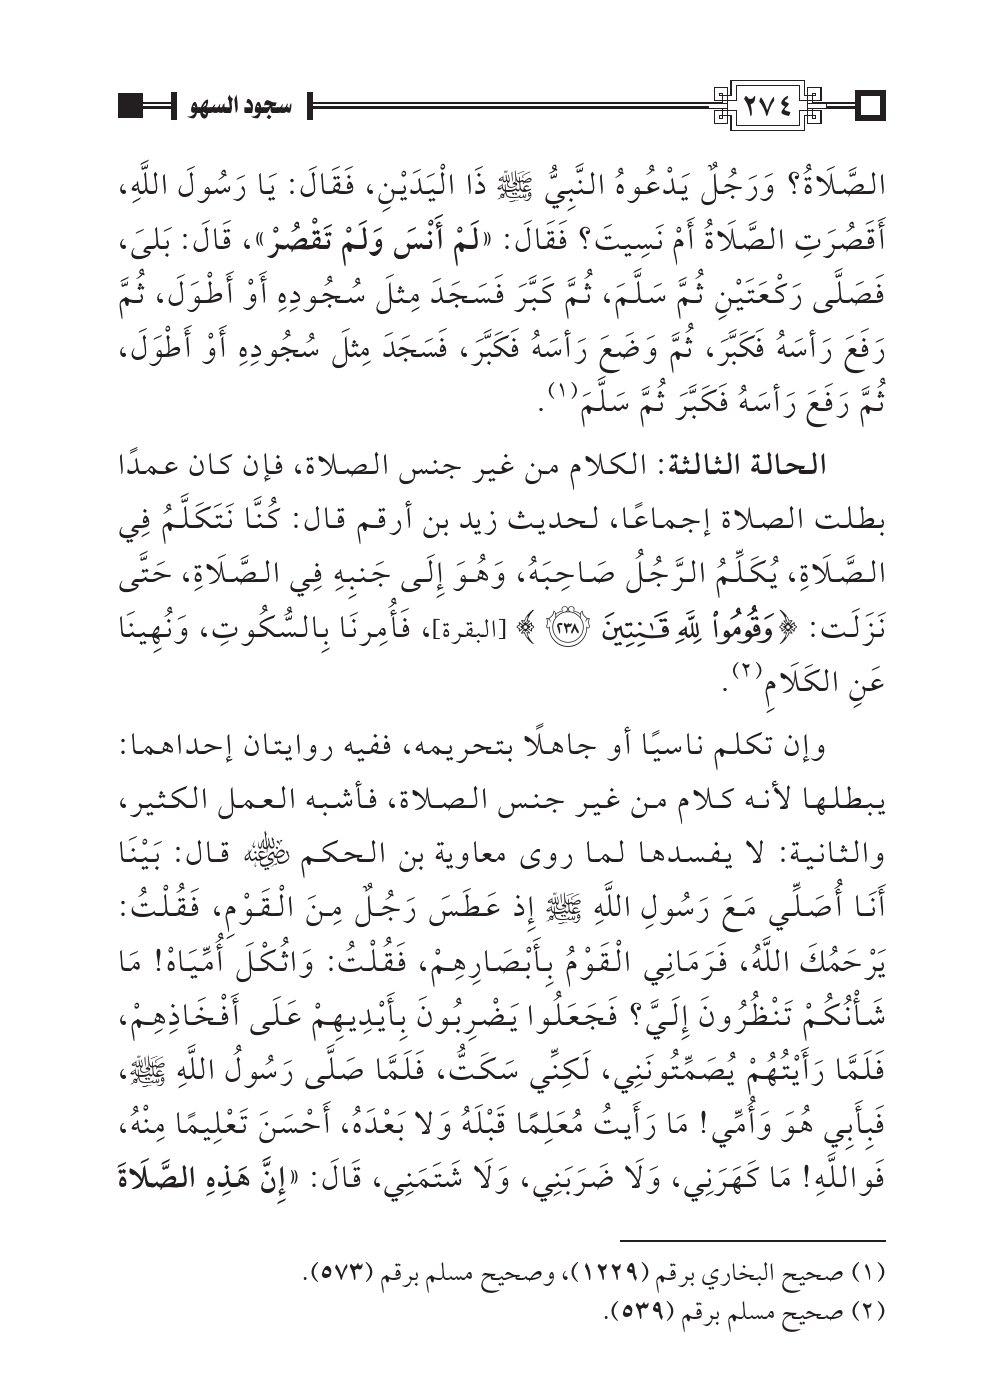 ٢٧٤ سجود السهو
الصَّلَاةُ؟ وَرَجُلٌ يَدْعُوهُ النَّبِيُّ ﷺ ذَا الْيَدَيْنِ، فَقَالَ: يَا رَسُولَ اللَّهِ،
أَقَصُرَتِ الصَّلَاةُ أَمْ نَسِيتَ؟ فَقَالَ: «لَمْ أَنْسَ وَلَمْ تَقْصُرْ»، قَالَ: بَلىَ،
فَصَلَّى رَكْعَتَيْنِ ثُمَّ سَلَّمَ، ثُمَّ كَبَّرَ فَسَجَدَ مِثلَ سُجُودِهِ أَوْ أَطْوَلَ، ثُمَّ
رَفَعَ رَأسَهُ فَكَبَّرَ، ثُمَّ وَضَعَ رَأسَهُ فَكَبَّرَ، فَسَجَدَ مِثلَ سُجُودِهِ أَوْ أَطْوَلَ،
ثُمَّ رَفَعَ رَأسَهُ فَكَبَّرَ ثُمَّ سَلَّمَ(١).
الحالة الثالثة: الكلام من غير جنس الصلاة، فإن كان عمدًا
بطلت الصلاة إجماعًا، لحديث زيد بن أرقم قال: كُنَّا نَتَكَلَّمُ فِي
الصَّلَاةِ، يُكَلِّمُ الرَّجُلُ صَاحِبَهُ، وَهُوَ إِلَى جَنبِهِ فِي الصَّلَاةِ، حَتَّى
نَزَلَت: ﴿وَقُومُواْ لِلَّهِ قَٰنِتِينَ ٢٣٨﴾ [البقرة]، فَأُمِرنَا بِالسُّكُوتِ، وَنُهِينَا
عَنِ الكَلَامِ(٢).
وإن تكلم ناسيًا أو جاهلًا بتحريمه، ففيه روايتان إحداهما:
يبطلها لأنه كلام من غير جنس الصلاة، فأشبه العمل الكثير،
والثانية: لا يفسدها لما روى معاوية بن الحكم رضي الله عنه قال: بَيْنَا
أَنَا أُصَلِّي مَعَ رَسُولِ اللَّهِ ﷺ إِذ عَطَسَ رَجُلٌ مِنَ الْقَوْمِ، فَقُلْتُ:
يَرْحَمُكَ اللَّهُ، فَرَمَانِي الْقَوْمُ بِأَبْصَارِهِمْ، فَقُلْتُ: وَاثُكْلَ أُمِّيَاهْ! مَا
شَأْنُكُمْ تَنْظُرُونَ إِلَيَّ؟ فَجَعَلُوا يَضْرِبُونَ بِأَيْدِيهِمْ عَلَى أَفْخَاذِهِمْ،
فَلَمَّا رَأَيْتُهُمْ يُصَمِّتُونَنِي، لَكِنِّي سَكَتُّ، فَلَمَّا صَلَّى رَسُولُ اللَّهِ ﷺ،
فَبِأَبِي هُوَ وَأُمِّي! مَا رَأَيتُ مُعَلِمًا قَبْلَهُ وَلا بَعْدَهُ، أَحْسَنَ تَعْلِيمًا مِنْهُ،
فَواللَّهِ! مَا كَهَرَنِي، وَلَا ضَرَبَنِي، وَلَا شَتَمَنِي، قَالَ: «إِنَّ هَذِهِ الصَّلَاةَ
(١) صحيح البخاري برقم (١٢٢٩)، وصحيح مسلم برقم (٥٧٣).
(٢) صحيح مسلم برقم (٥٣٩).